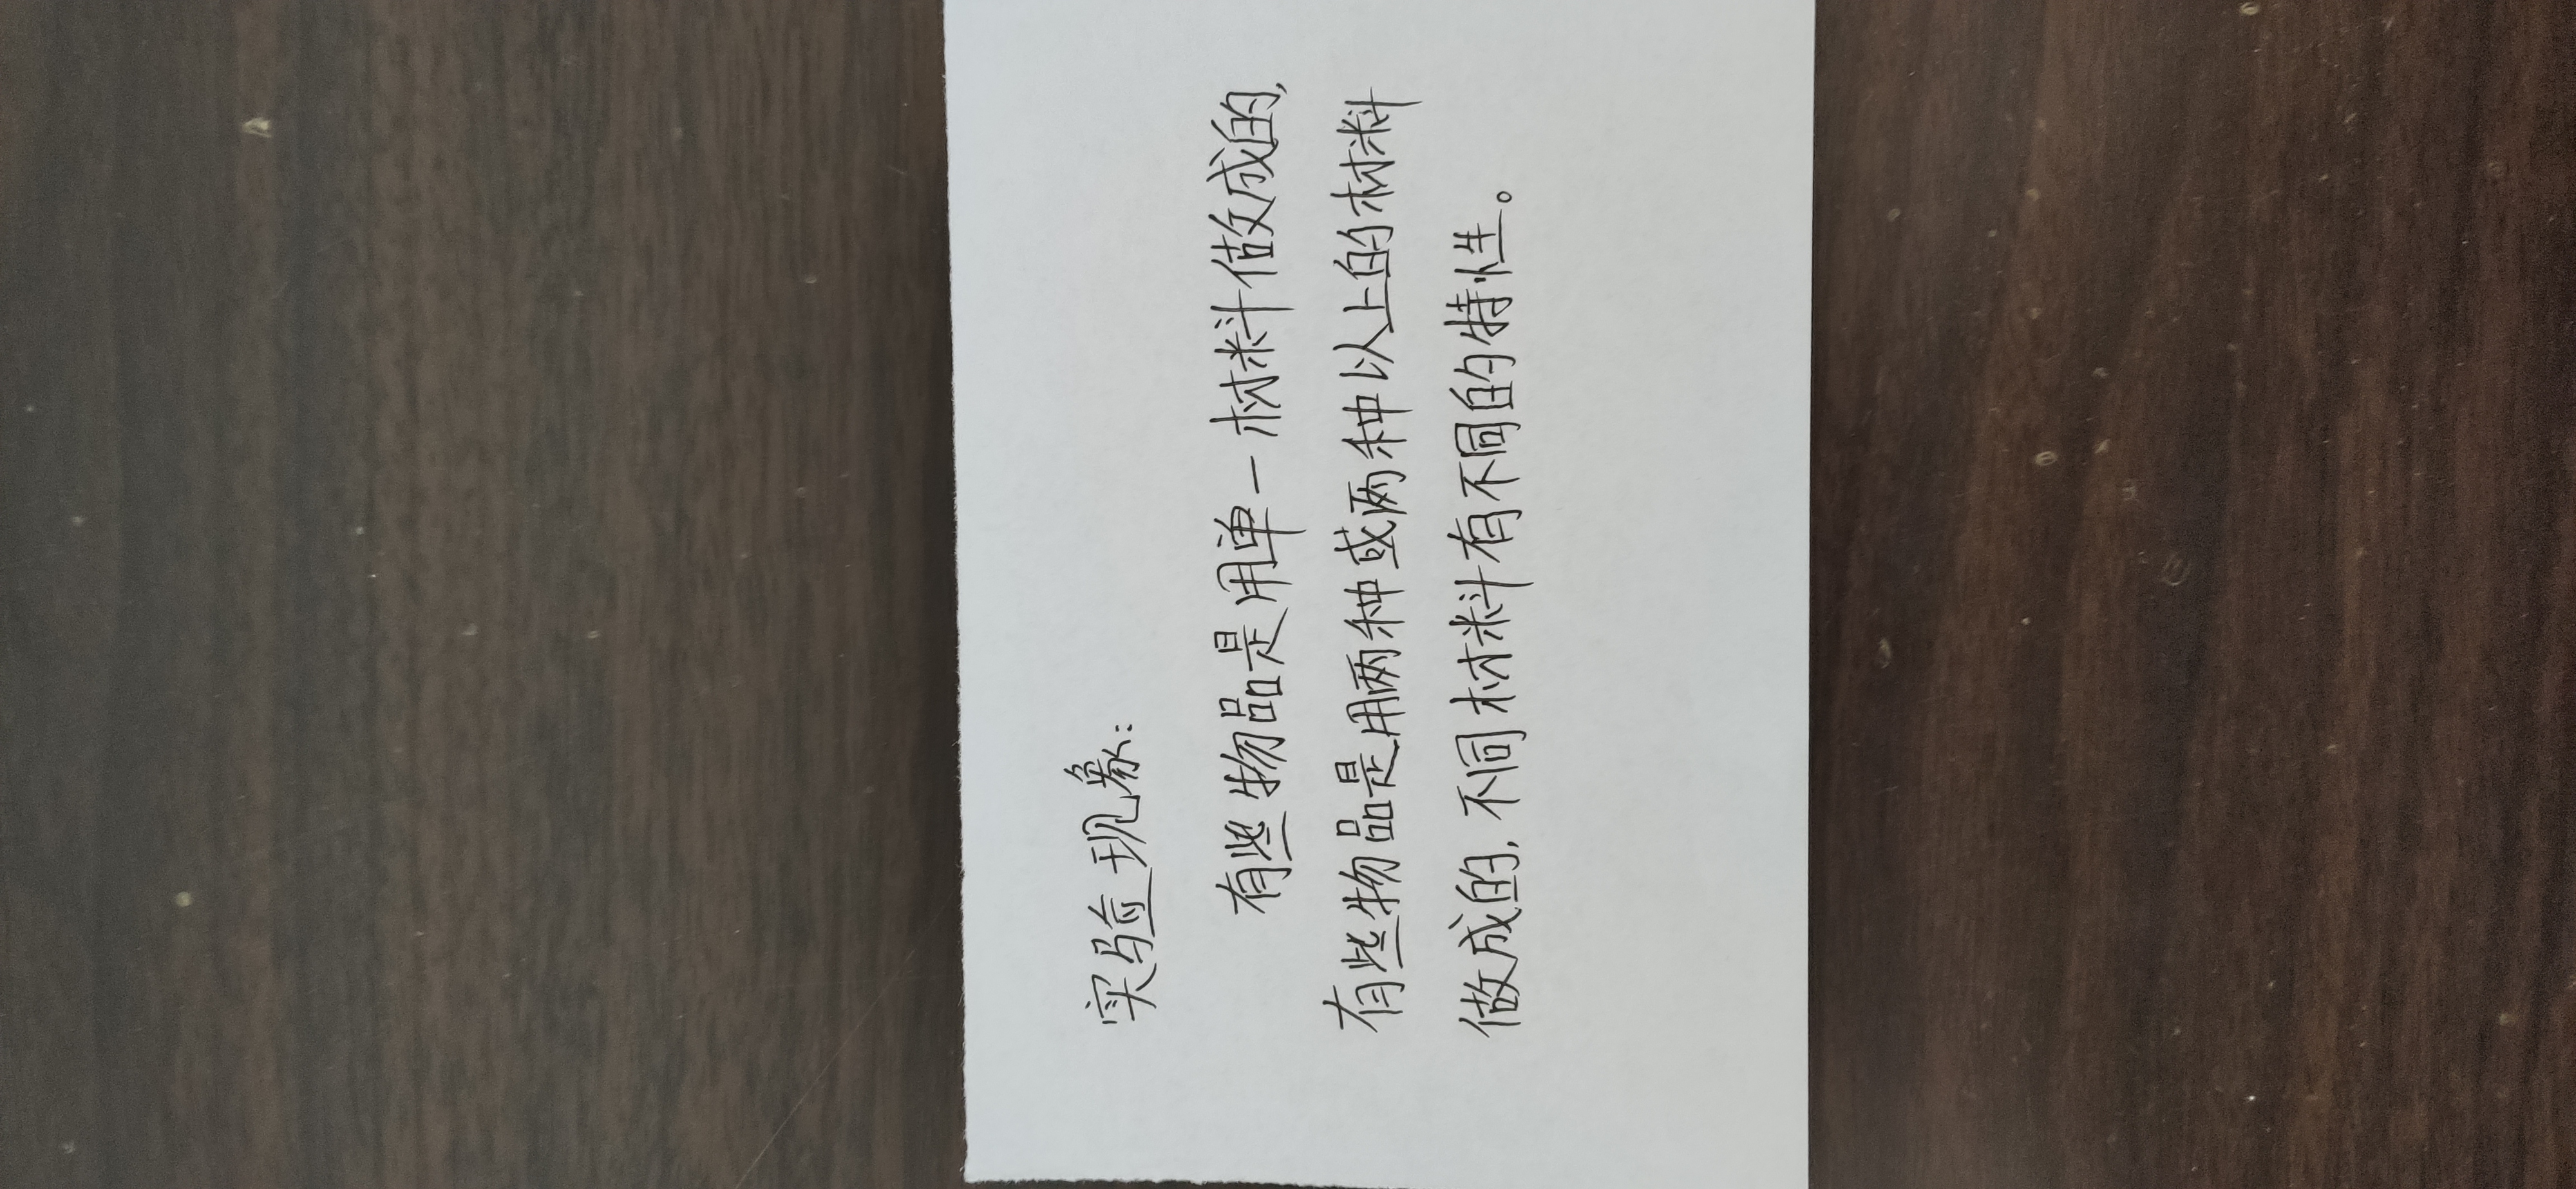 实验现象:
有些物品是用单一材料做成的,
有些物品是用两种或两种以上的材料
做成的,不同材料有不同的特性。